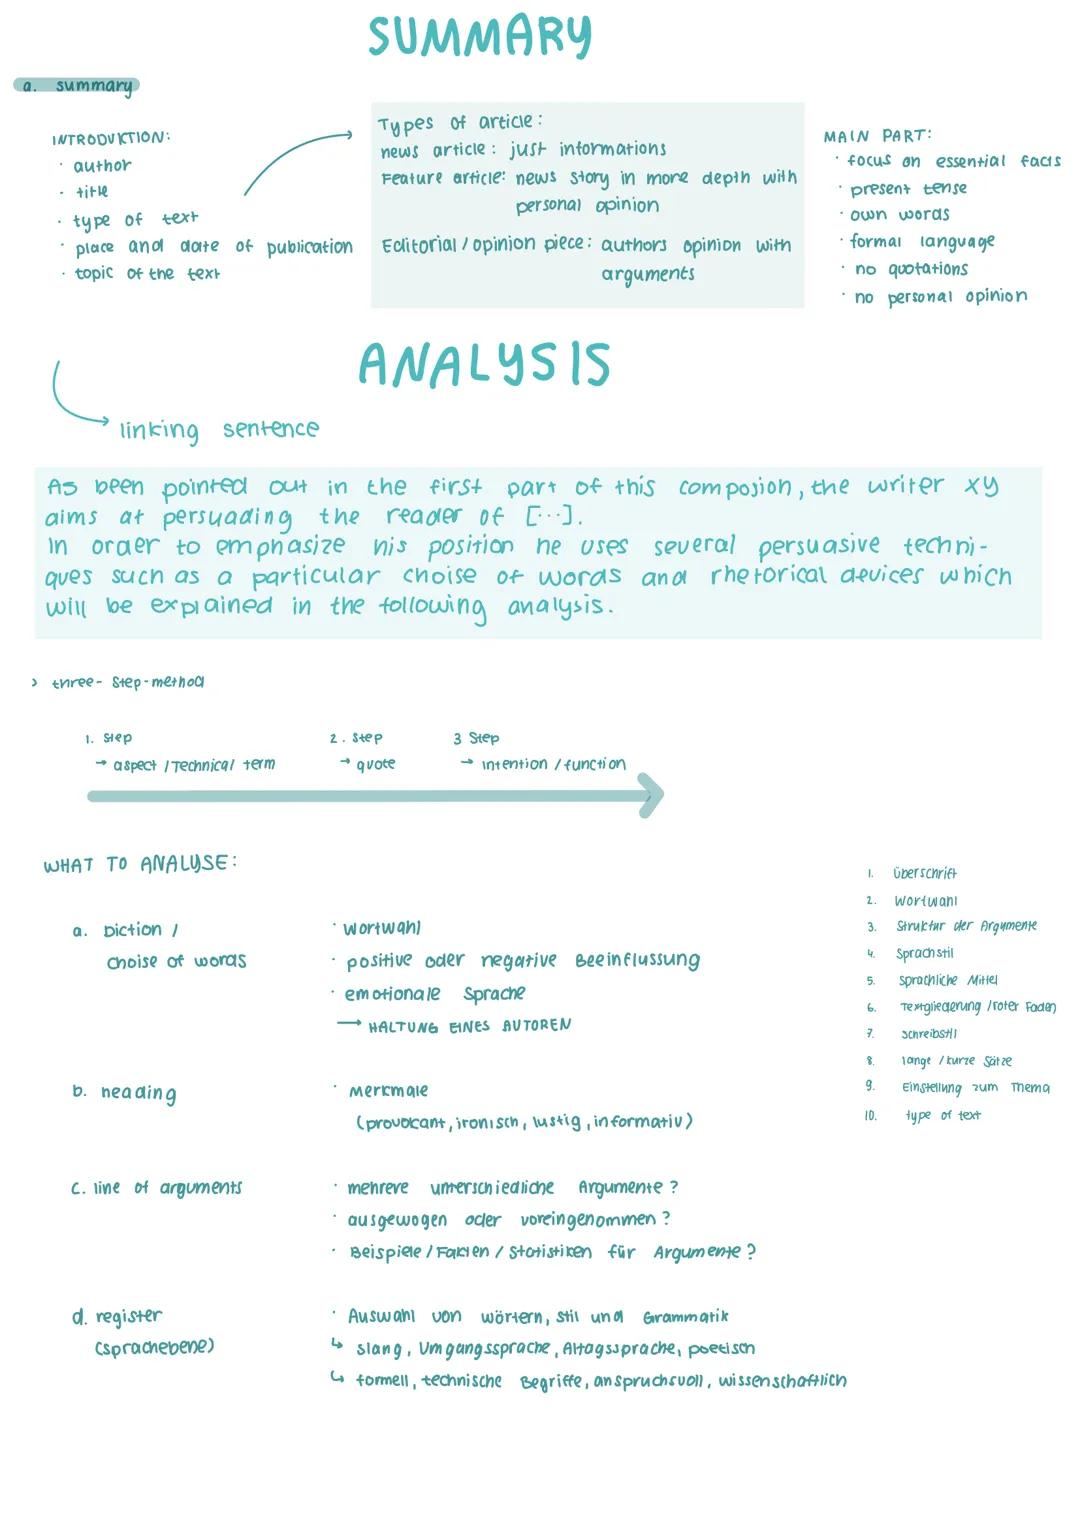 SUMMARY
a. summary
INTRODUKTION:
· author
· title
· type of text
· place and date of publication
· topic of the text
Types of article:
news article: just informations
Feature article: news story in more depth with
personal opinion
Editorial / opinion piece: authors opinion with
arguments
MAIN PART:
· focus on essential facts
· present tense
· own words
· formal language
· no quotations
· no personal opinion
ANALYSIS
→ linking sentence
As been pointed out in the first part of this composion, the writer xy
aims at persuading the reader of [...].
In order to emphasize his position he uses several persuasive techni-
ques such as a particular choise of words and rhetorical devices which
will be explained in the following analysis.
> three-step-method
1. Step
→ aspect / Technical term
2. Step
→ quote
3 Step
→ intention / function
WHAT TO ANALYSE:
a. Diction /
choise of words
· Wortwahl
· positive oder negative Beeinflussung
· emotionale Sprache
→ HALTUNG EINES AUTOREN
b. heading
· Merkmale
(provokant, ironisch, lustig, informativ)
c. line of arguments
· mehrere unterschiedliche Argumente?
· ausgewogen oder voreingenommen?
· Beispiele / Fakten / Statistiken für Argumente?
d. register
(sprachebene)
· Auswahl von wörtern, stil und Grammatik
↳ slang, Umgangssprache, Alltagssprache, poetisch
↳ formell, technische Begriffe, anspruchsvoll, wissenschaftlich
1. Überschrift
2. Wortwahl
3. Struktur der Argumente
4. Sprachstil
5. sprachliche Mittel
6. Textgliederung / roter Faden
7. Schreibstil
8. lange / kurze Sätze
9. Einstellung zum Thema
10. type of text